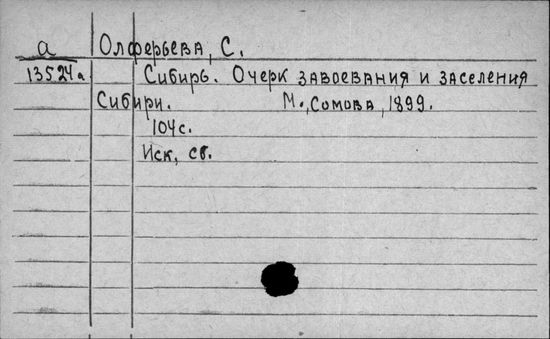 а Олферьева, С.
13524а. Сибирь. Очерк завоевания и заселения
Сибири. М., Сомова, 1899.
104с.
Иск, св.